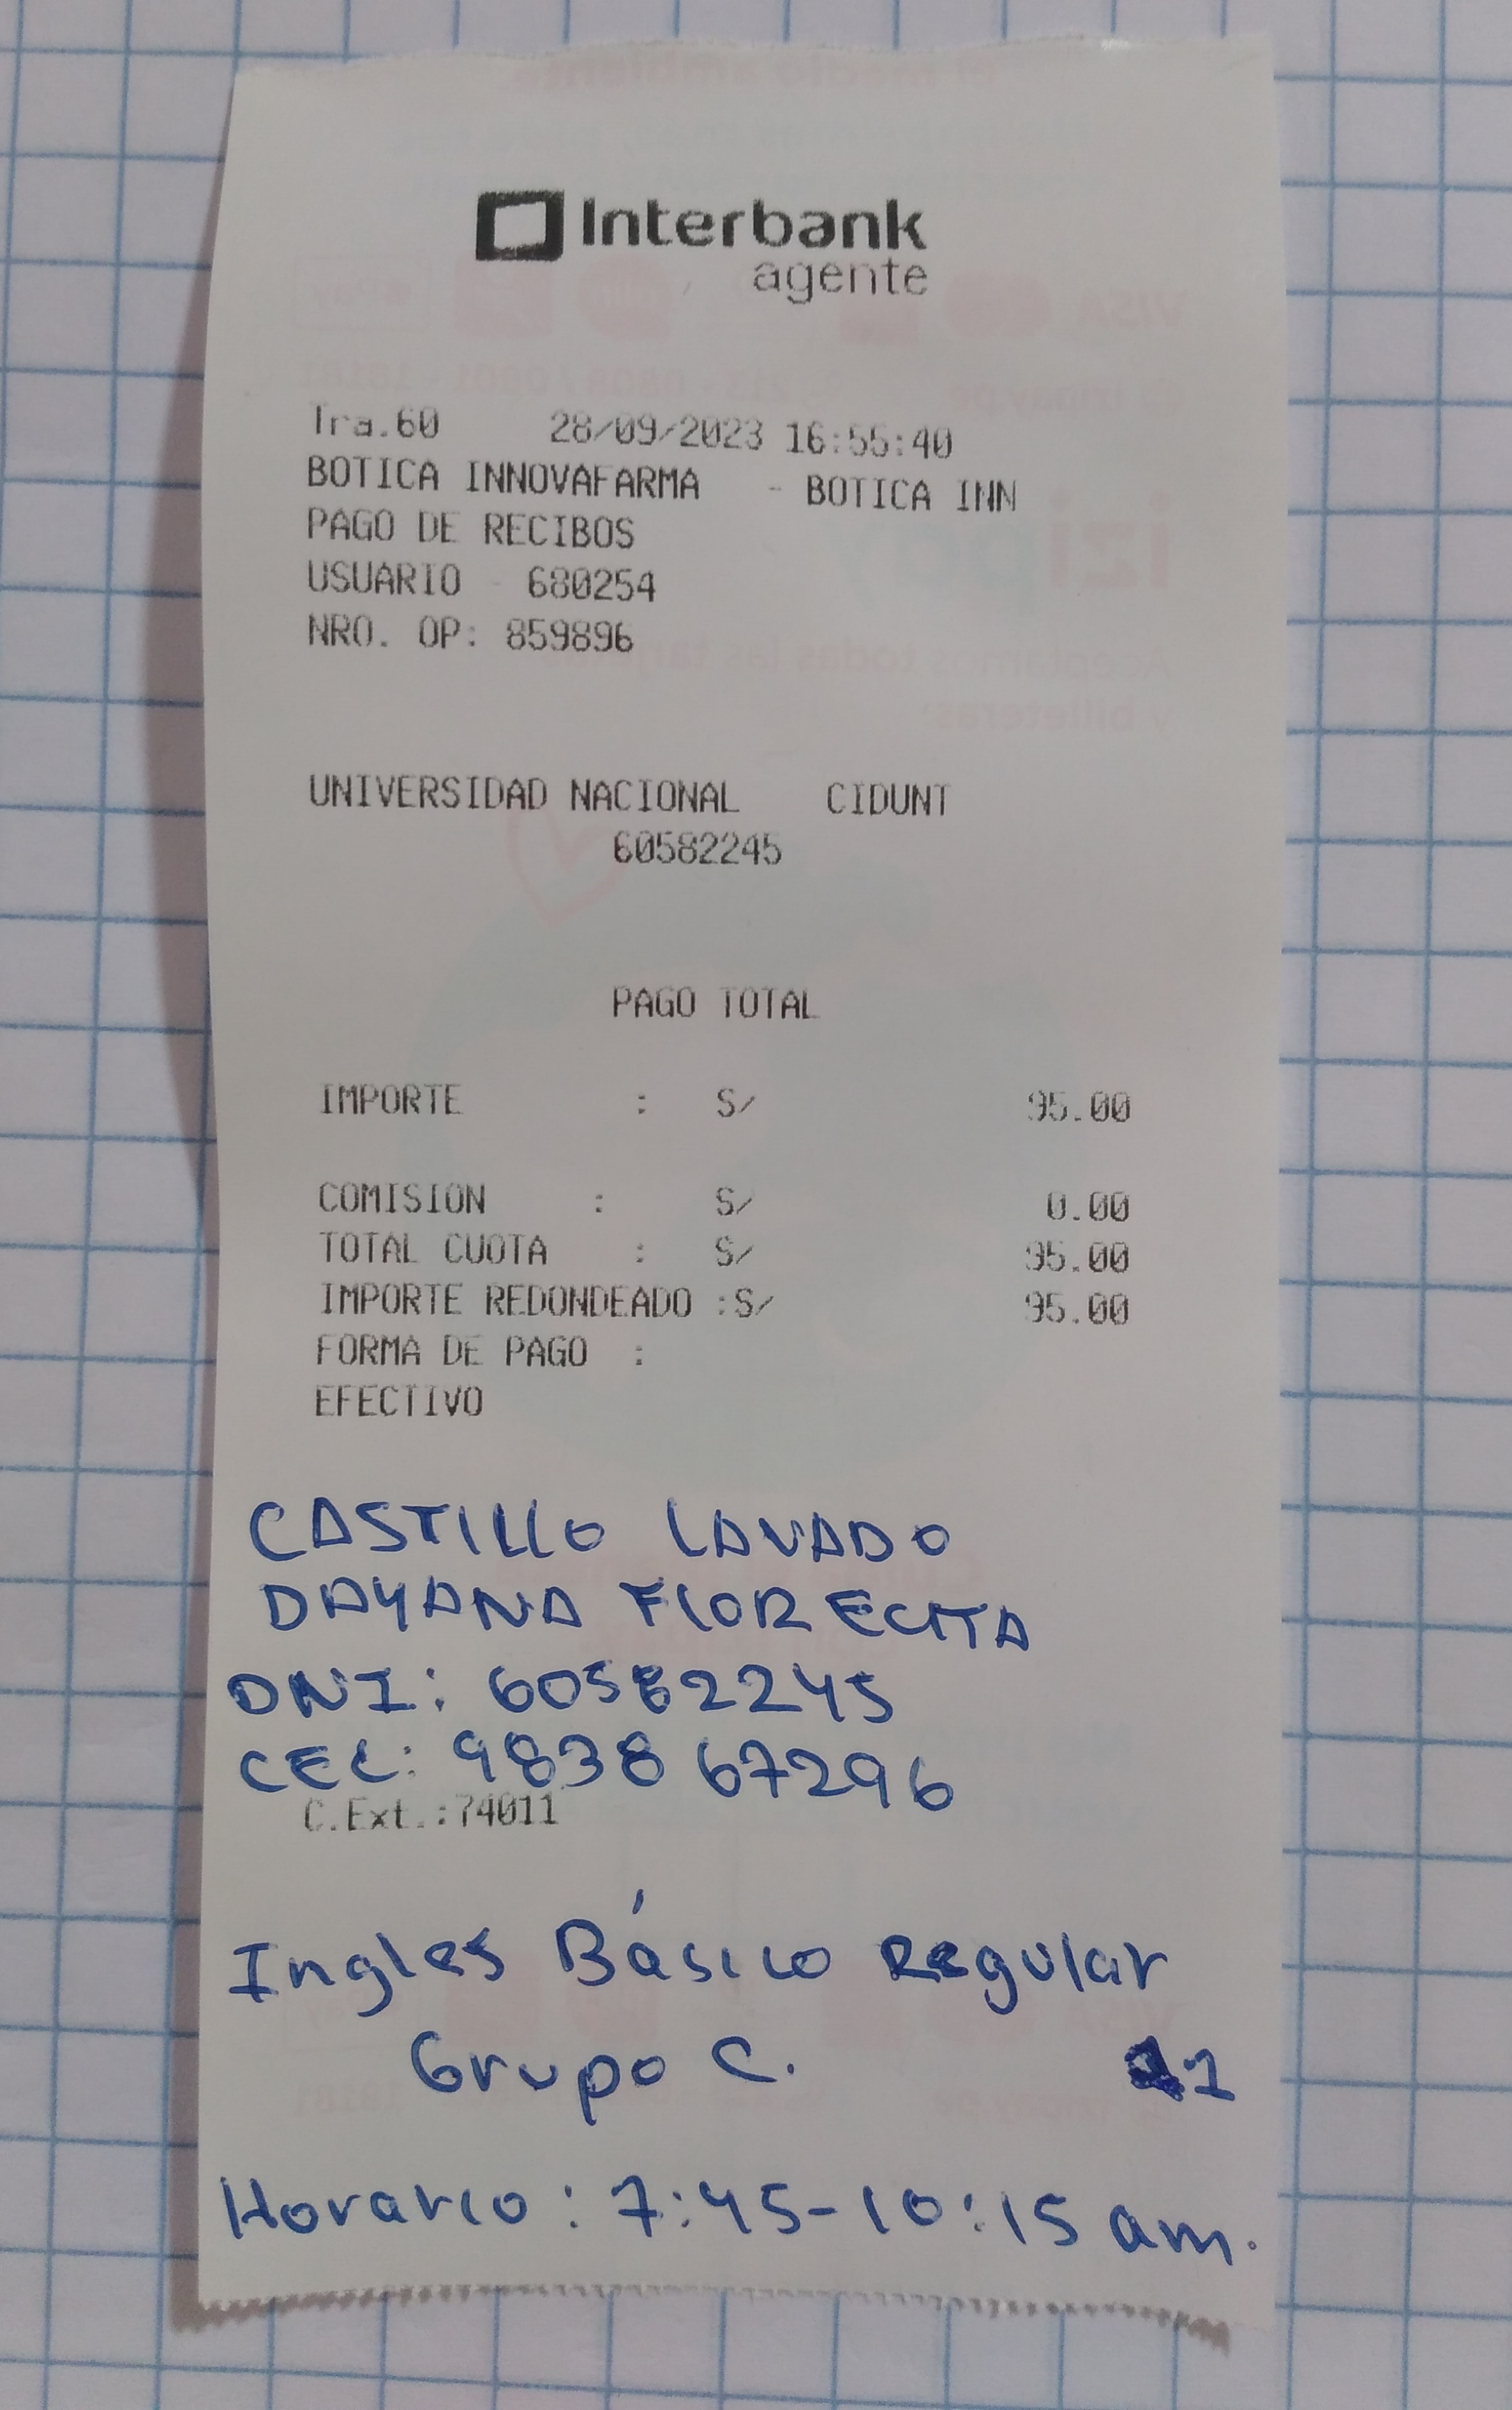 Interbank
agente
Tra.60 28/09/2023 16:55:40
BOTICA INNOVAFARMA - BOTICA INN
PAGO DE RECIBOS
USUARIO - 680254
NRO. OP: 859896
UNIVERSIDAD NACIONAL CIDUNT
60582245
PAGO TOTAL
IMPORTE : S/ 95.00
COMISION : S/ 0.00
TOTAL CUOTA : S/ 95.00
IMPORTE REDONDEADO :S/ 95.00
FORMA DE PAGO :
EFECTIVO
CASTILLO LAVADO
DAYANA FLORECITA
DNI: 60582245
CEL: 983867296
C.Ext.:74011
Ingles Básico Regular
Grupo C. 1
Horario: 7:45-10:15 am.